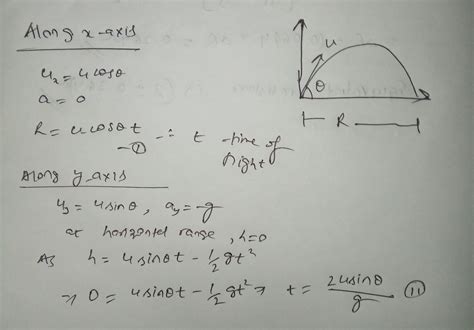 Along x-axis
uₓ = u cosθ
a = 0
R = u cosθ t ∴ t -time of flight
- ①
u
θ
R
Along y-axis
uy = u sinθ, ay = -g
at horizontal range, h=0
As h = u sinθt - 1/2 gt²
⇒ 0 = u sinθt - 1/2 gt² ⇒ t = 2u sinθ/g ⑪